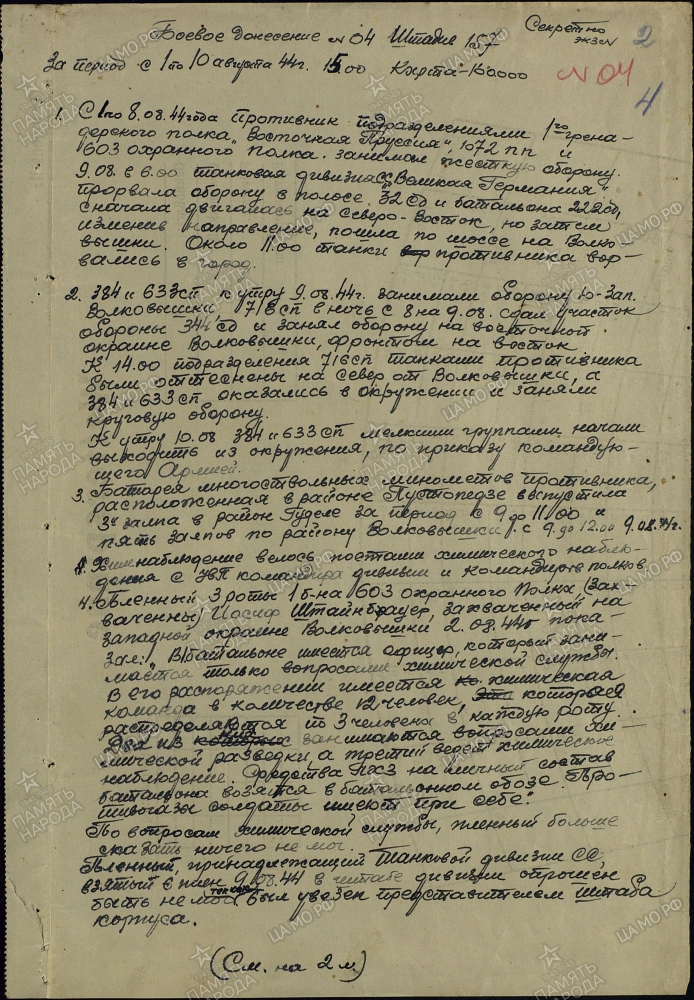 Секретно
экз N
2
Боевое донесение N 04 Штадив 157
За период с 1 по 10 августа 44г. 15.00 Карта-100.000
N 04
4
1. С 1 по 8.08.44 года противник подразделениями 1го грена-
дерского полка „Восточная Пруссия“, 1072 пп и
603 охранного полка занимал жесткую оборону.
9.08 в 6.00 танковая дивизия СС „Великая Германия“
прорвала оборону в полосе 32 сд и батальона 222 сд,
сначала двигалась на северо-восток, но затем
изменив направление, пошла по шоссе на Волко-
вышки. Около 11.00 танки противника вор-
вались в город.
2. 384 и 633 сп к утру 9.08.44г. занимали оборону ю-зап.
Волковышки, 716 сп в ночь с 8 на 9.08. сдал участок
обороны 344 сд и занял оборону на восточной
окраине Волковышки, фронтом на восток.
К 14.00 подразделения 716 сп танками противника
были оттеснены на север от Волковышки, а
384 и 633 сп оказались в окружении и заняли
круговую оборону.
К утру 10.08 384 и 633 сп мелкими группами начали
выходить из окружения, по приказу командую-
щего Армией.
3. Батарея многоствольных минометов противника,
расположенная в районе Пустопедзе выпустила
3 залпа в район Гуделе за период с 9 до 11.00 и
пять залпов по району Волковышки с 9 до 12.00 9.08.44г.
Химнаблюдение велось постами химического наблю-
дения с НП командира дивизии и командиров полков.
4. Пленный 3 роты 1 б-на 603 охранного полка (зах-
ваченный) Иосиф Штайнбауер, захваченный на
западной окраине Волковышки 2.08.44г пока-
зал: „В батальоне имеется офицер, который зани-
мается только вопросами химической службы.
В его распоряжении имеется химическая
команда в количестве 12 человек, которая
распределяются по 3 человека в каждую роту.
Два из них занимаются вопросами хи-
мической разведки, а третий ведет химическое
наблюдение. Средства ПХЗ на личный состав
батальона возятся в батальонном обозе. Про-
тивогазы солдаты имеют при себе.“
По вопросам химической службы, пленный больше
сказать ничего не мог.
Пленный, принадлежащий танковой дивизии СС,
взятый в плен 9.08.44 в штабе дивизии опрошен
быть не мог, был увезен представителем штаба
корпуса.
(См. на 2 л)
ПАМЯТЬ НАРОДА
ЦАМО.РФ